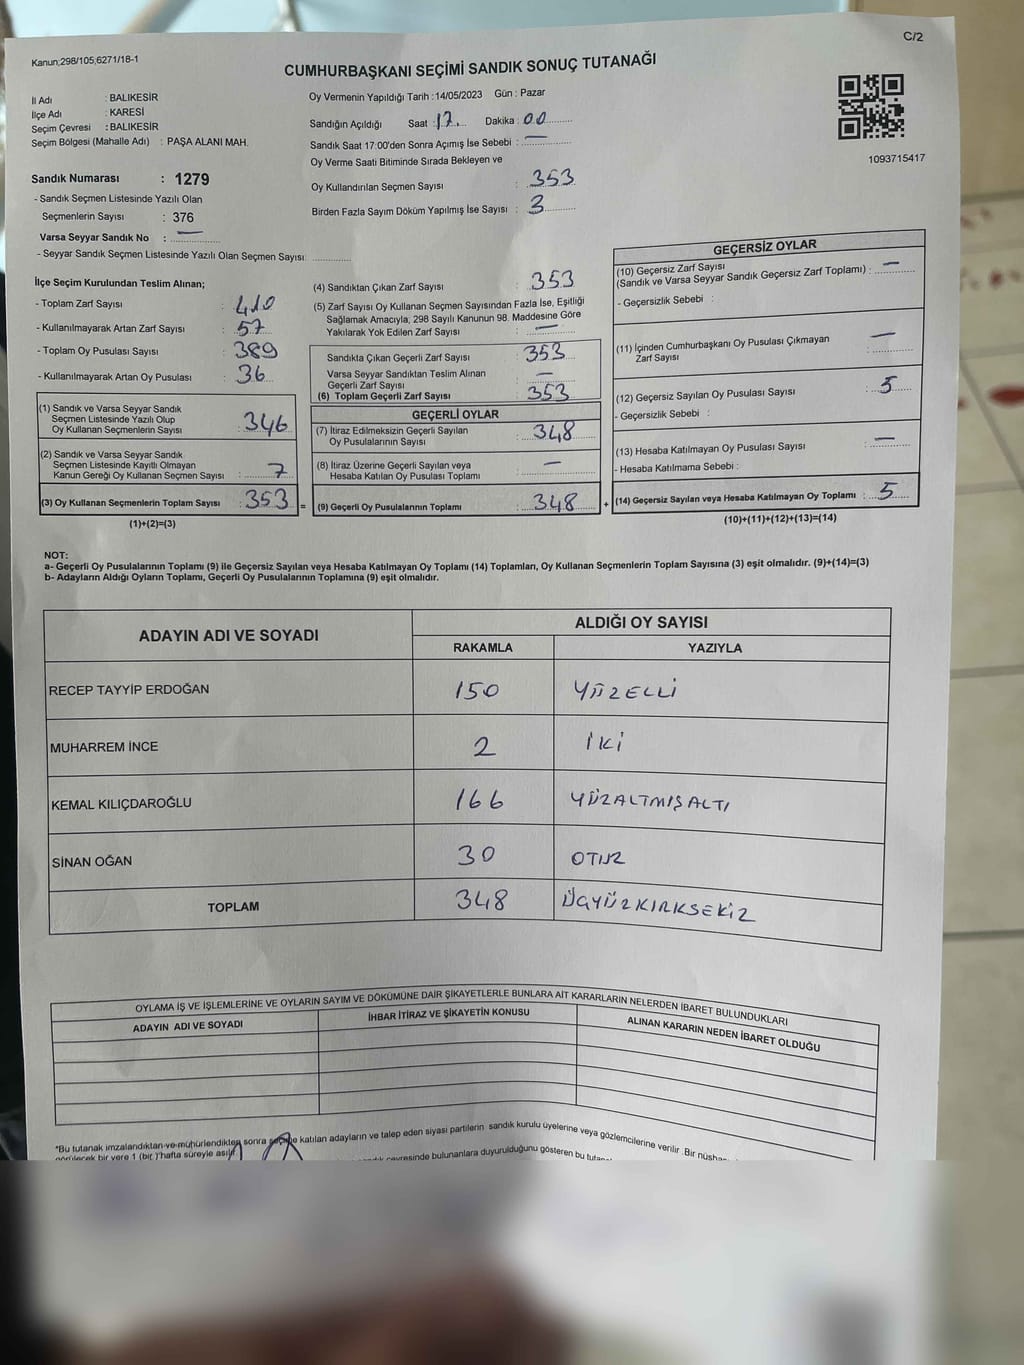 C/2
Kanun;298/105;6271/18-1
CUMHURBAŞKANI SEÇİMİ SANDIK SONUÇ TUTANAĞI
İl Adı : BALIKESİR
İlçe Adı : KARESİ
Seçim Çevresi : BALIKESİR
Seçim Bölgesi (Mahalle Adı) : PAŞA ALANI MAH.
Sandık Numarası : 1279
- Sandık Seçmen Listesinde Yazılı Olan
Seçmenlerin Sayısı : 376
Varsa Seyyar Sandık No : —
- Seyyar Sandık Seçmen Listesinde Yazılı Olan Seçmen Sayısı:
Oy Vermenin Yapıldığı Tarih :14/05/2023 Gün : Pazar
Sandığın Açıldığı Saat : 17 Dakika : 00
Sandık Saat 17:00'den Sonra Açımış İse Sebebi : —
Oy Verme Saati Bitiminde Sırada Bekleyen ve
Oy Kullandırılan Seçmen Sayısı : 353
Birden Fazla Sayım Döküm Yapılmış İse Sayısı : 3
1093715417
İlçe Seçim Kurulundan Teslim Alınan;
- Toplam Zarf Sayısı : 410
- Kullanılmayarak Artan Zarf Sayısı : 57
- Toplam Oy Pusulası Sayısı : 389
- Kullanılmayarak Artan Oy Pusulası : 36
(1) Sandık ve Varsa Seyyar Sandık
Seçmen Listesinde Yazılı Olup
Oy Kullanan Seçmenlerin Sayısı : 346
(2) Sandık ve Varsa Seyyar Sandık
Seçmen Listesinde Kayıtlı Olmayan
Kanun Gereği Oy Kullanan Seçmen Sayısı : 7
(3) Oy Kullanan Seçmenlerin Toplam Sayısı : 353 =
(1)+(2)=(3)
(4) Sandıktan Çıkan Zarf Sayısı : 353
(5) Zarf Sayısı Oy Kullanan Seçmen Sayısından Fazla İse, Eşitliği
Sağlamak Amacıyla, 298 Sayılı Kanunun 98. Maddesine Göre
Yakılarak Yok Edilen Zarf Sayısı : —
Sandıkta Çıkan Geçerli Zarf Sayısı : 353
Varsa Seyyar Sandıktan Teslim Alınan
Geçerli Zarf Sayısı : —
(6) Toplam Geçerli Zarf Sayısı : 353
GEÇERLİ OYLAR
(7) İtiraz Edilmeksizin Geçerli Sayılan
Oy Pusulalarının Sayısı : 348
(8) İtiraz Üzerine Geçerli Sayılan veya
Hesaba Katılan Oy Pusulası Toplamı : —
(9) Geçerli Oy Pusulalarının Toplamı : 348 +
GEÇERSİZ OYLAR
(10) Geçersiz Zarf Sayısı
(Sandık ve Varsa Seyyar Sandık Geçersiz Zarf Toplamı) : —
- Geçersizlik Sebebi :
(11) İçinden Cumhurbaşkanı Oy Pusulası Çıkmayan
Zarf Sayısı : —
(12) Geçersiz Sayılan Oy Pusulası Sayısı : 5
- Geçersizlik Sebebi :
(13) Hesaba Katılmayan Oy Pusulası Sayısı : —
- Hesaba Katılmama Sebebi :
(14) Geçersiz Sayılan veya Hesaba Katılmayan Oy Toplamı : 5
(10)+(11)+(12)+(13)=(14)
NOT:
a- Geçerli Oy Pusulalarının Toplamı (9) ile Geçersiz Sayılan veya Hesaba Katılmayan Oy Toplamı (14) Toplamları, Oy Kullanan Seçmenlerin Toplam Sayısına (3) eşit olmalıdır. (9)+(14)=(3)
b- Adayların Aldığı Oyların Toplamı, Geçerli Oy Pusulalarının Toplamına (9) eşit olmalıdır.
ADAYIN ADI VE SOYADI ALDIĞI OY SAYISI
RAKAMLA YAZIYLA
RECEP TAYYİP ERDOĞAN 150 YÜZELLİ
MUHARREM İNCE 2 İKİ
KEMAL KILIÇDAROĞLU 166 YÜZALTMIŞALTI
SİNAN OĞAN 30 OTUZ
TOPLAM 348 ÜÇYÜZKIRKSEKİZ
OYLAMA İŞ VE İŞLEMLERİNE VE OYLARIN SAYIM VE DÖKÜMÜNE DAİR ŞİKAYETLERLE BUNLARA AİT KARARLARIN NELERDEN İBARET BULUNDUKLARI
ADAYIN ADI VE SOYADI İHBAR İTİRAZ VE ŞİKAYETİN KONUSU ALINAN KARARIN NEDEN İBARET OLDUĞU
*Bu tutanak imzalandıktan ve mühürlendikten sonra katılan adayların ve talep eden siyasi partilerin sandık kurulu üyelerine veya gözlemcilerine verilir. Bir
bir yere 1 (bir) hafta süreyle çevresinde bulunanlara duyurulduğunu gösteren bu